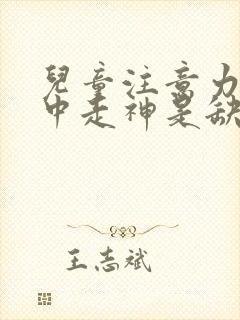 兒童注意力
中走神是缺
王志斌